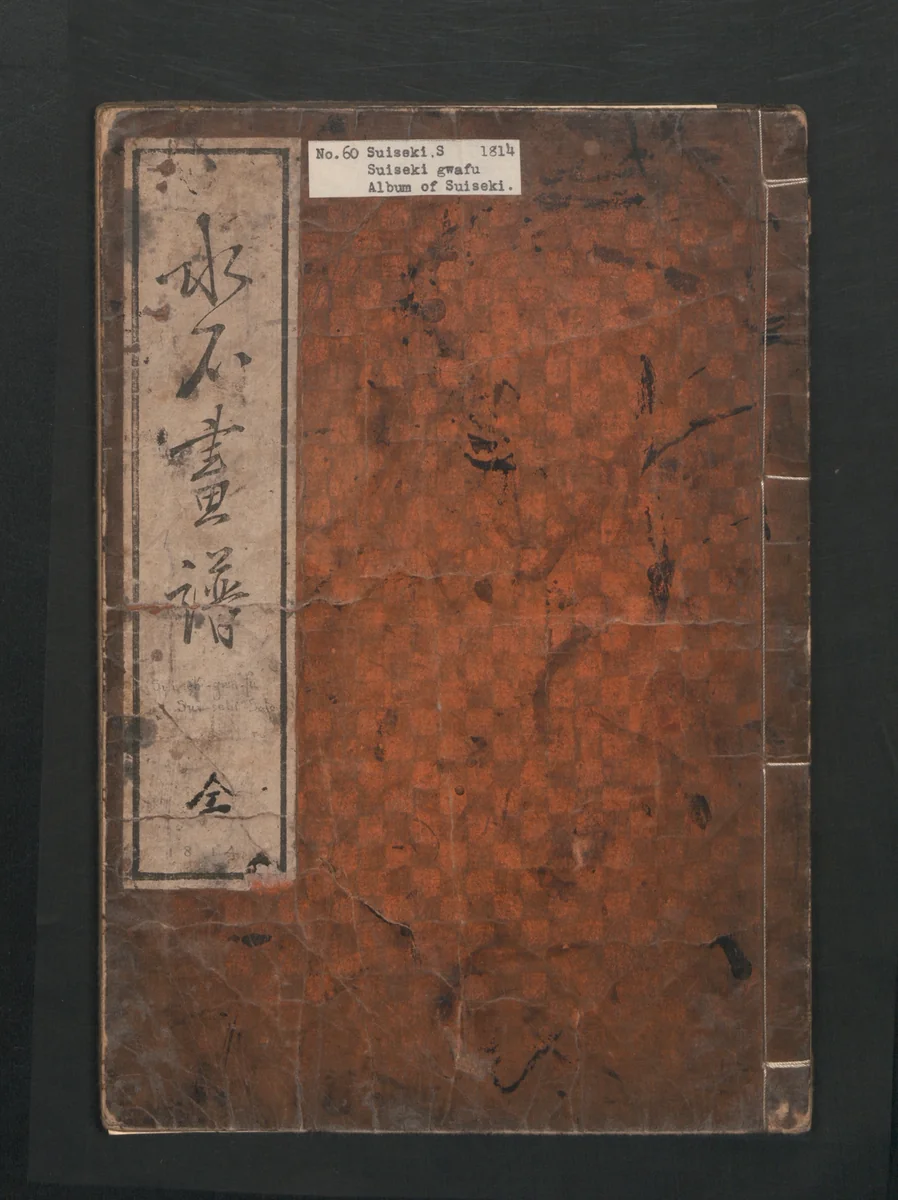 No.60 Suiseki.S 1814
Suiseki gwafu
Album of Suiseki.
水石畫譜
全
1814